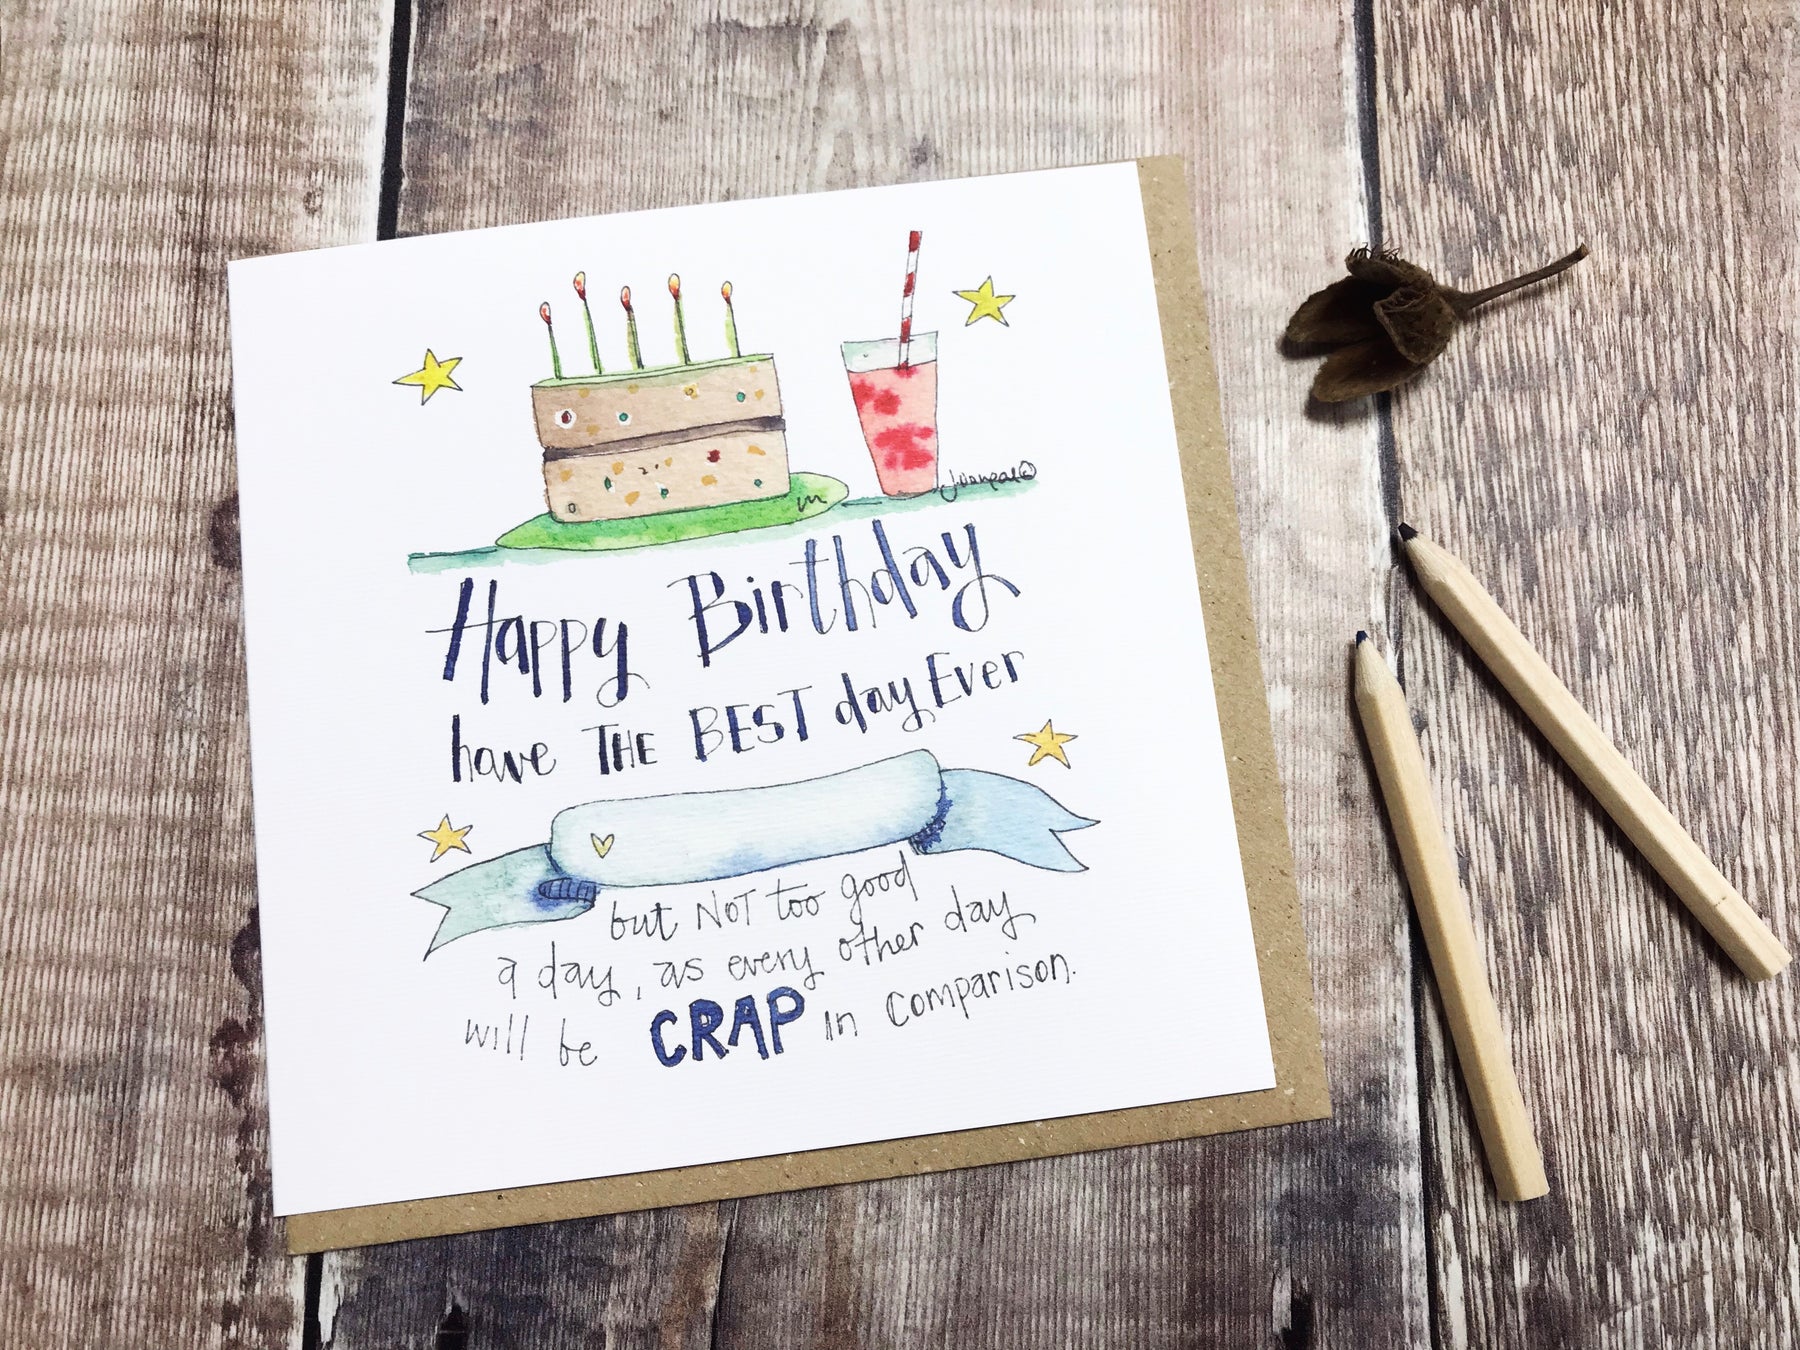 Happy Birthday
have THE BEST day Ever
but NOT too good
a day, as every other day
will be CRAP in comparison.